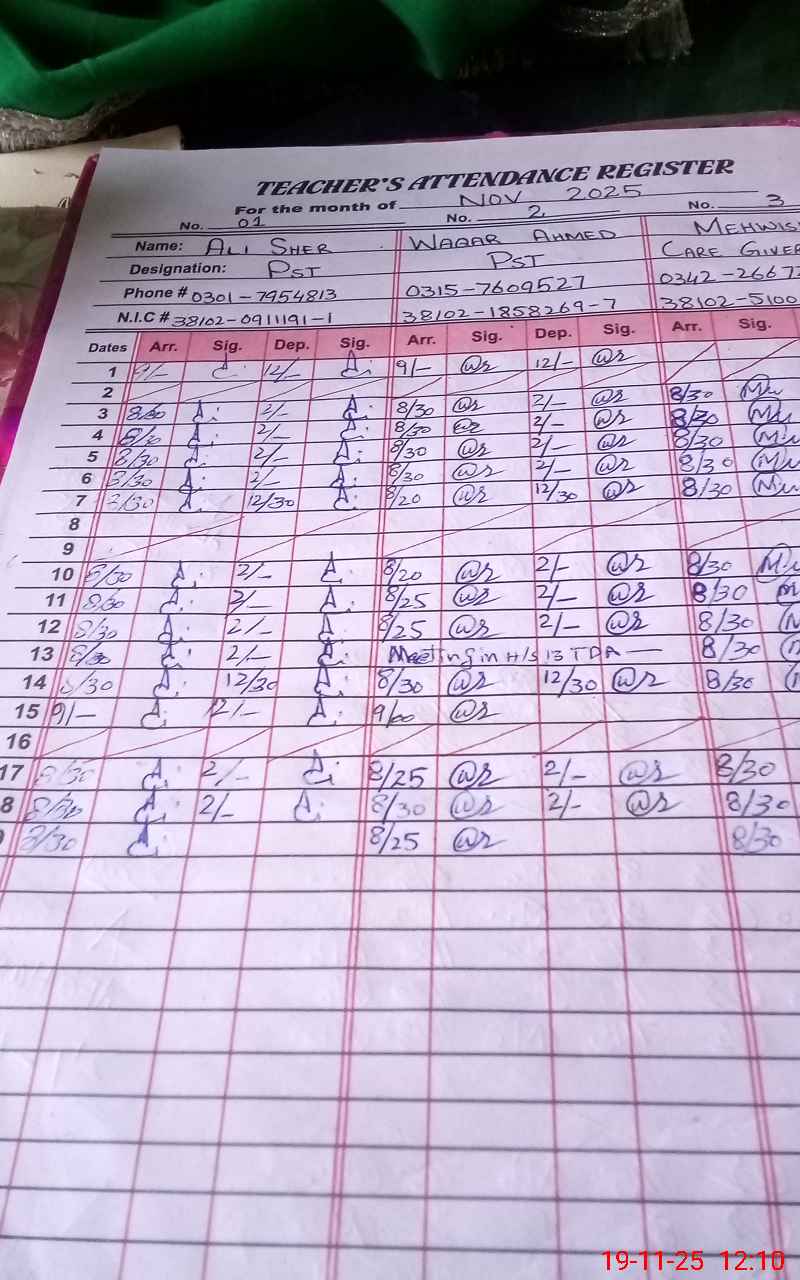 TEACHER'S ATTENDANCE REGISTER
For the month of NOV 2025
No. 01 No. 2 No. 3
Name: ALI SHER WAQAR AHMED MEHWIS
Designation: PST PST CARE GIVER
Phone # 0301-7954813 0315-7609527 0342-2667
N.I.C # 38102-0911191-1 38102-1858269-7 38102-5100
Dates Arr. Sig. Dep. Sig. Arr. Sig. Dep. Sig. Arr. Sig.
1 9/- 12/- 9/- 12/-
2
3 8/30 2/- 8/30 2/- 8/30
4 8/30 2/- 8/30 2/- 8/30
5 8/30 2/- 8/30 2/- 8/30
6 8/30 2/- 8/30 2/- 8/30
7 8/30 12/30 8/20 12/30 8/30
8
9
10 8/30 2/- 8/20 2/- 8/30
11 8/30 2/- 8/25 2/- 8/30
12 8/30 2/- 8/25 2/- 8/30
13 8/30 2/- Meeting in H/S 13 TDA — 8/30
14 8/30 12/30 8/30 12/30 8/30
15 9/- 12/- 9/00
16
17 8/30 2/- 8/25 2/- 8/30
8 8/30 2/- 8/30 2/- 8/30
8/30 8/25 8/30
19-11-25 12:10